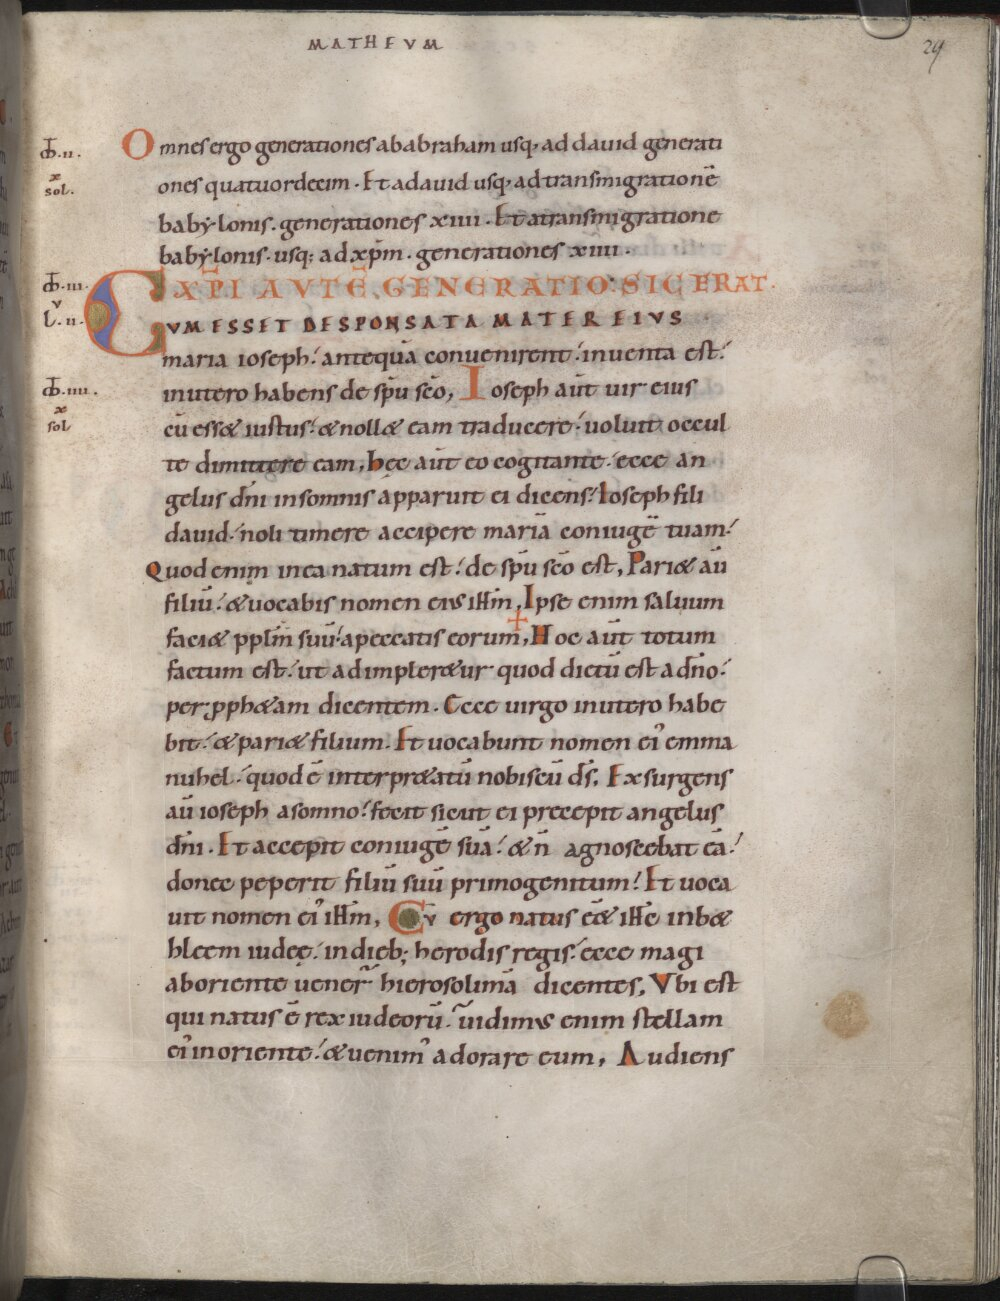 MATHEVM
29
Ϯb.ii.
x
sol.
Omnes ergo generationes ab abraham usq; ad dauid generati
ones quatuordecim. Et a dauid usq; ad transmigrationē
babylonis. generationes xiiii. Et a transmigratione
babylonis. usq; ad xp̄m. generationes xiiii.
iii.
v
L.ii.
XP̄I AVTĒ GENERATIO SIC ERAT.
CVM ESSET DESPONSATA MATER EIVS
maria ioseph. antequā conuenirent. inuenta est.
iiii.
x
sol
in utero habens de sp̄u sc̄o, Ioseph aūt uir eius
cū ess& iustus. & noll& eam traducere. uoluit occul
te dimittere eam, Hec aūt eo cogitante. ecce an
gelus dn̄i in somnis apparuit ei dicens. Ioseph fili
dauid. noli timere accipere mariā coniugē tuam.
Quod enim in ea natum est. de sp̄u sc̄o est, Pari& aū
filiū. & uocabis nomen eius ih̄m, Ipse enim saluum
faci& pplm̄ suū. a peccatis eorum, Hoc aūt totum
factum est. ut adimpler&ur quod dictū est a dn̄o.
per pph&am dicentem. Ecce uirgo in utero habe
bit. & pari& filium. Et uocabunt nomen ei' emma
nuhel. quod ē interpr&atū nobiscū d̄s, Exsurgens
aū ioseph a somno. fecit sicut ei precepit angelus
dn̄i. Et accepit coniugē suā. & n̄ agnoscebat eā.
donec peperit filiū suū primogenitum. Et uoca
uit nomen ei' ih̄m, Cū ergo natus ēē ih̄c in b&
hleem iudeę. in dieb; herodis regis. ecce magi
ab oriente uener̄ hierosolimā dicentes, Vbi est
qui natus ē rex iudeorū. uidimus enim stellam
ei' in oriente. & uenim' adorare eum, Audiens